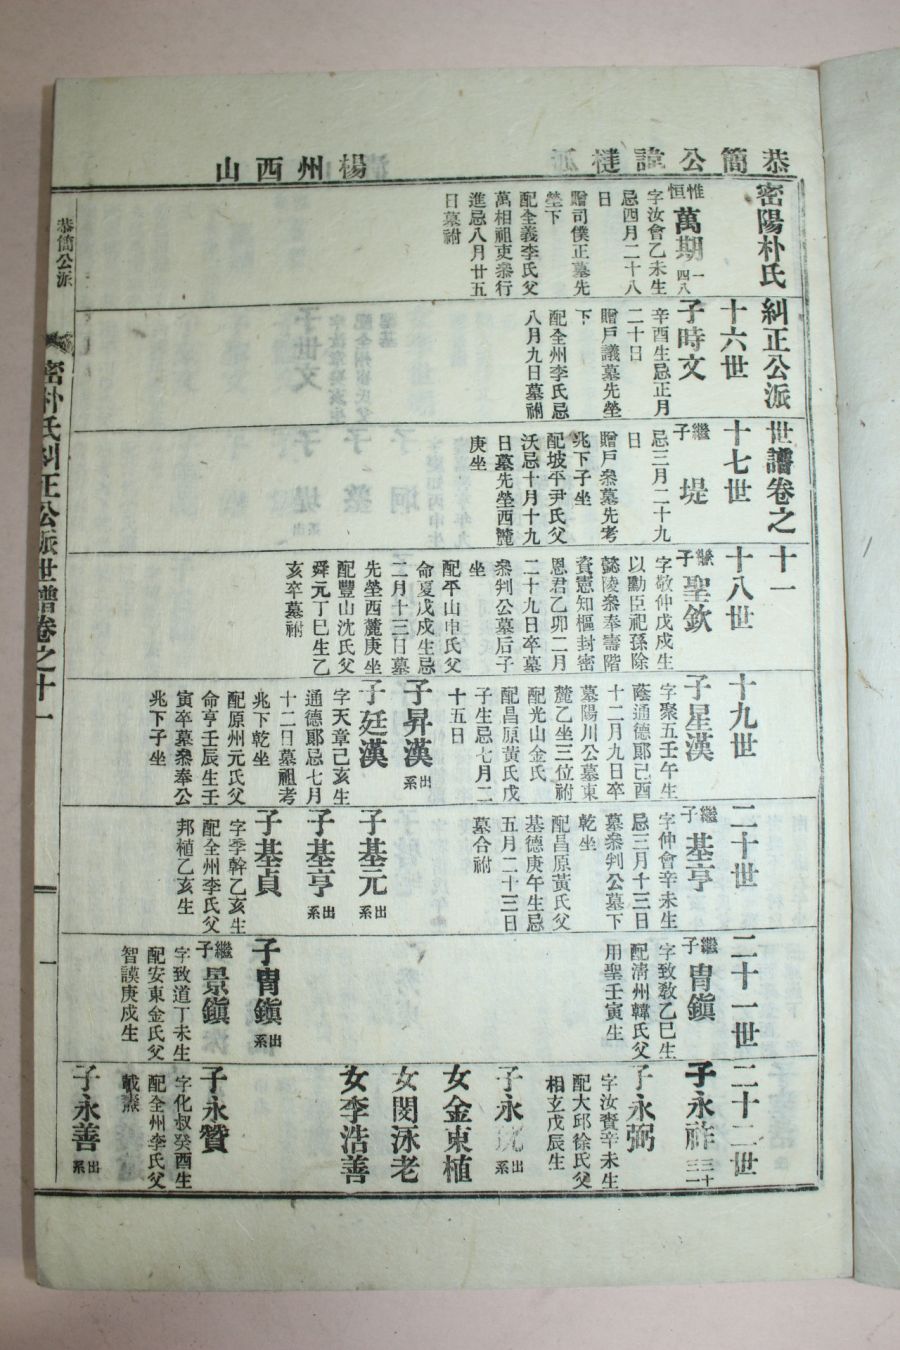 恭簡公諱㯖派
楊州西山
密陽朴氏糾正公派世譜卷之十一
惟恒
萬期
一八四
字汝會乙未生
忌四月二十八
日
贈司僕正墓先
塋下
配全義李氏父
萬相祖吏參行
進忌八月廿五
日墓祔
十六世
子時文
辛酉生忌正月
二十日
贈戶議墓先塋
下
配全州李氏忌
八月九日墓祔
十七世
繼子
堤
忌三月二十九
日
贈戶參墓先考
兆下子坐
配坡平尹氏父
沃忌十月十九
日墓先塋西麓
庚坐
十八世
繼子
聖欽
字敬仲戊戌生
以勳臣祀孫除
懿陵參奉壽階
資憲知樞封密
恩君乙卯二月
二十九日卒墓
參判公墓后子
坐
配平山申氏父
命夏戊戌生忌
二月十三日墓
先塋西麓庚坐
配豐山沈氏父
舜元丁巳生乙
亥卒墓祔
十九世
子星漢
字聚五壬午生
蔭通德郞己酉
十二月九日卒
墓陽川公墓東
麓乙坐三位祔
配光山金氏
配昌原黃氏戊
子生忌七月二
十五日
子昇漢
出系
子廷漢
字天章己亥生
通德郞忌七月
十二日墓祖考
兆下乾坐
配原州元氏父
命亨壬辰生壬
寅卒墓參奉公
兆下子坐
二十世
繼子
基亨
字仲會辛未生
忌三月十三日
墓參判公墓下
乾坐
配昌原黃氏父
基德庚午生忌
五月二十三日
墓合祔
子基元
出系
子基亨
出系
子基貞
字季幹乙亥生
配全州李氏父
邦植乙亥生
二十一世
繼子
胄鎭
字致敎乙巳生
配淸州韓氏父
用聖壬寅生
子胄鎭
出系
繼子
景鎭
字致道丁未生
配安東金氏父
智謨庚戌生
二十二世
子永祚
三十三一
子永弼
字汝賚辛未生
配大邱徐氏父
相玄戊辰生
子永
出系
女金東植
女閔泳老
女李浩善
子永贊
字化叔癸酉生
配全州李氏父
載薰
子永善
出系
恭簡公派
密朴氏糾正公派世譜卷之十一
一